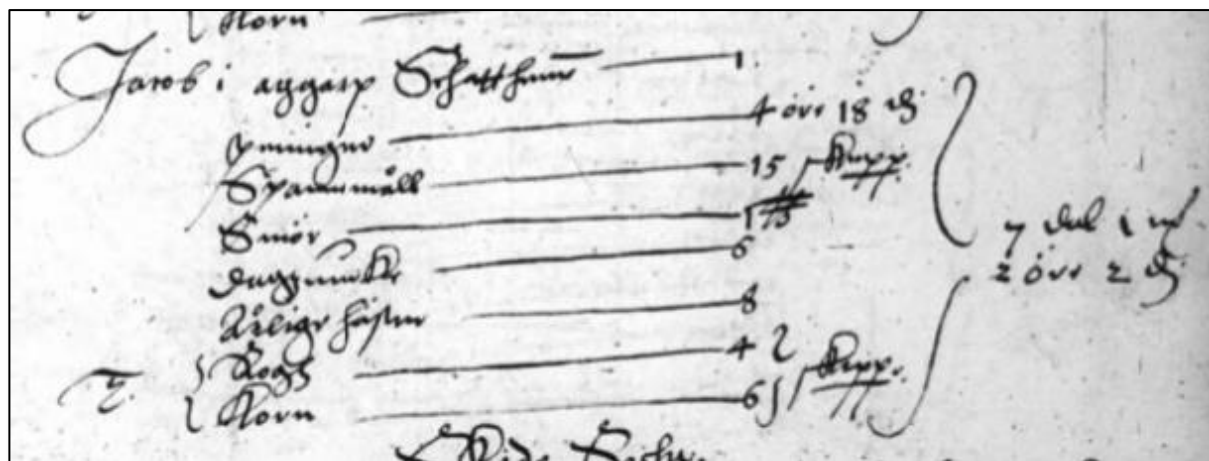 Korn
Jacob i aggarp Schatthemn 1
peninger 4 öre 18 d
Spannmåll 15 Kapp.
Smör 1
Dagzuercke 6
Årlige häster 8
T. Rogh 4
Korn 6 Kapp.
7 dal 1 m
2 öre 2 d